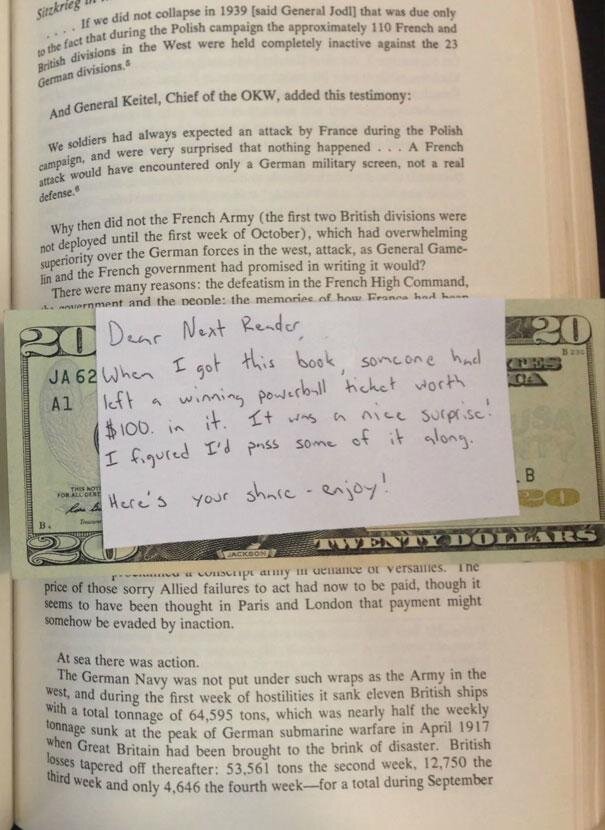 Sitzkrieg
. . . . If we did not collapse in 1939 [said General Jodl] that was due only
to the fact that during the Polish campaign the approximately 110 French and
British divisions in the West were held completely inactive against the 23
German divisions.⁵
And General Keitel, Chief of the OKW, added this testimony:
We soldiers had always expected an attack by France during the Polish
campaign, and were very surprised that nothing happened . . . A French
attack would have encountered only a German military screen, not a real
defense.⁶
Why then did not the French Army (the first two British divisions were
not deployed until the first week of October), which had overwhelming
superiority over the German forces in the west, attack, as General Game-
lin and the French government had promised in writing it would?
There were many reasons: the defeatism in the French High Command,
government and the people; the memories of how France had been
20
JA 62
A1
THIS NOTE
FOR ALL DEBT
B
20
JACKSON
20
B
TES
CA
B
20
TWENTY DOLLARS
Dear Next Reader,
When I got this book, someone had
left a winning powerball ticket worth
$100. in it. It was a nice surprise!
I figured I'd pass some of it along.
Here's your share - enjoy!
a conscript army in defiance of Versailles. The
price of those sorry Allied failures to act had now to be paid, though it
seems to have been thought in Paris and London that payment might
somehow be evaded by inaction.
At sea there was action.
The German Navy was not put under such wraps as the Army in the
west, and during the first week of hostilities it sank eleven British ships
with a total tonnage of 64,595 tons, which was nearly half the weekly
tonnage sunk at the peak of German submarine warfare in April 1917
when Great Britain had been brought to the brink of disaster. British
losses tapered off thereafter: 53,561 tons the second week, 12,750 the
third week and only 4,646 the fourth week—for a total during September